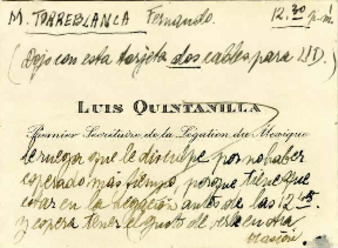 M. TORREBLANCA Fernando. 12.30 p.m.
(Dejo con esta tarjeta dos cables para UD.)
LUIS QUINTANILLA
Premier Secrétaire de la Légation du Mexique
le ruega que le disculpe por no haber
esperado más tiempo, porque tiene que
estar en la Legación antes de las 12.45
y espera tener el gusto de verle en otra
ocasión.